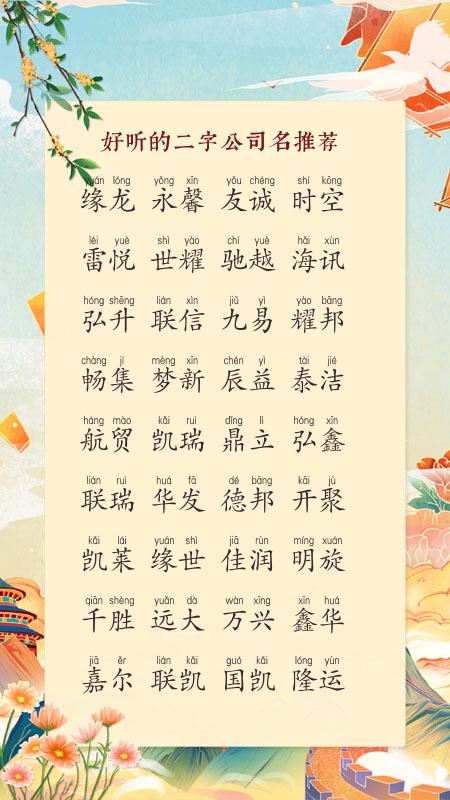 好听的二字公司名推荐
yuán lóng yǒng xīn yǒu chéng shí kōng
缘龙 永馨 友诚 时空
léi yuè shì yào chí yuè hǎi xùn
雷悦 世耀 驰越 海讯
hóng shēng lián xìn jiǔ yì yào bāng
弘升 联信 九易 耀邦
chàng jí mèng xīn chén yì tài jié
畅集 梦新 辰益 泰洁
háng mào kǎi ruì dǐng lì hóng xīn
航贸 凯瑞 鼎立 弘鑫
lián ruì huá fā dé bāng kāi jù
联瑞 华发 德邦 开聚
kǎi lái yuán shì jiā rùn míng xuán
凯莱 缘世 佳润 明旋
qiān shèng yuǎn dà wàn xīng xīn huá
千胜 远大 万兴 鑫华
jiā ěr lián kǎi guó kǎi lóng yùn
嘉尔 联凯 国凯 隆运